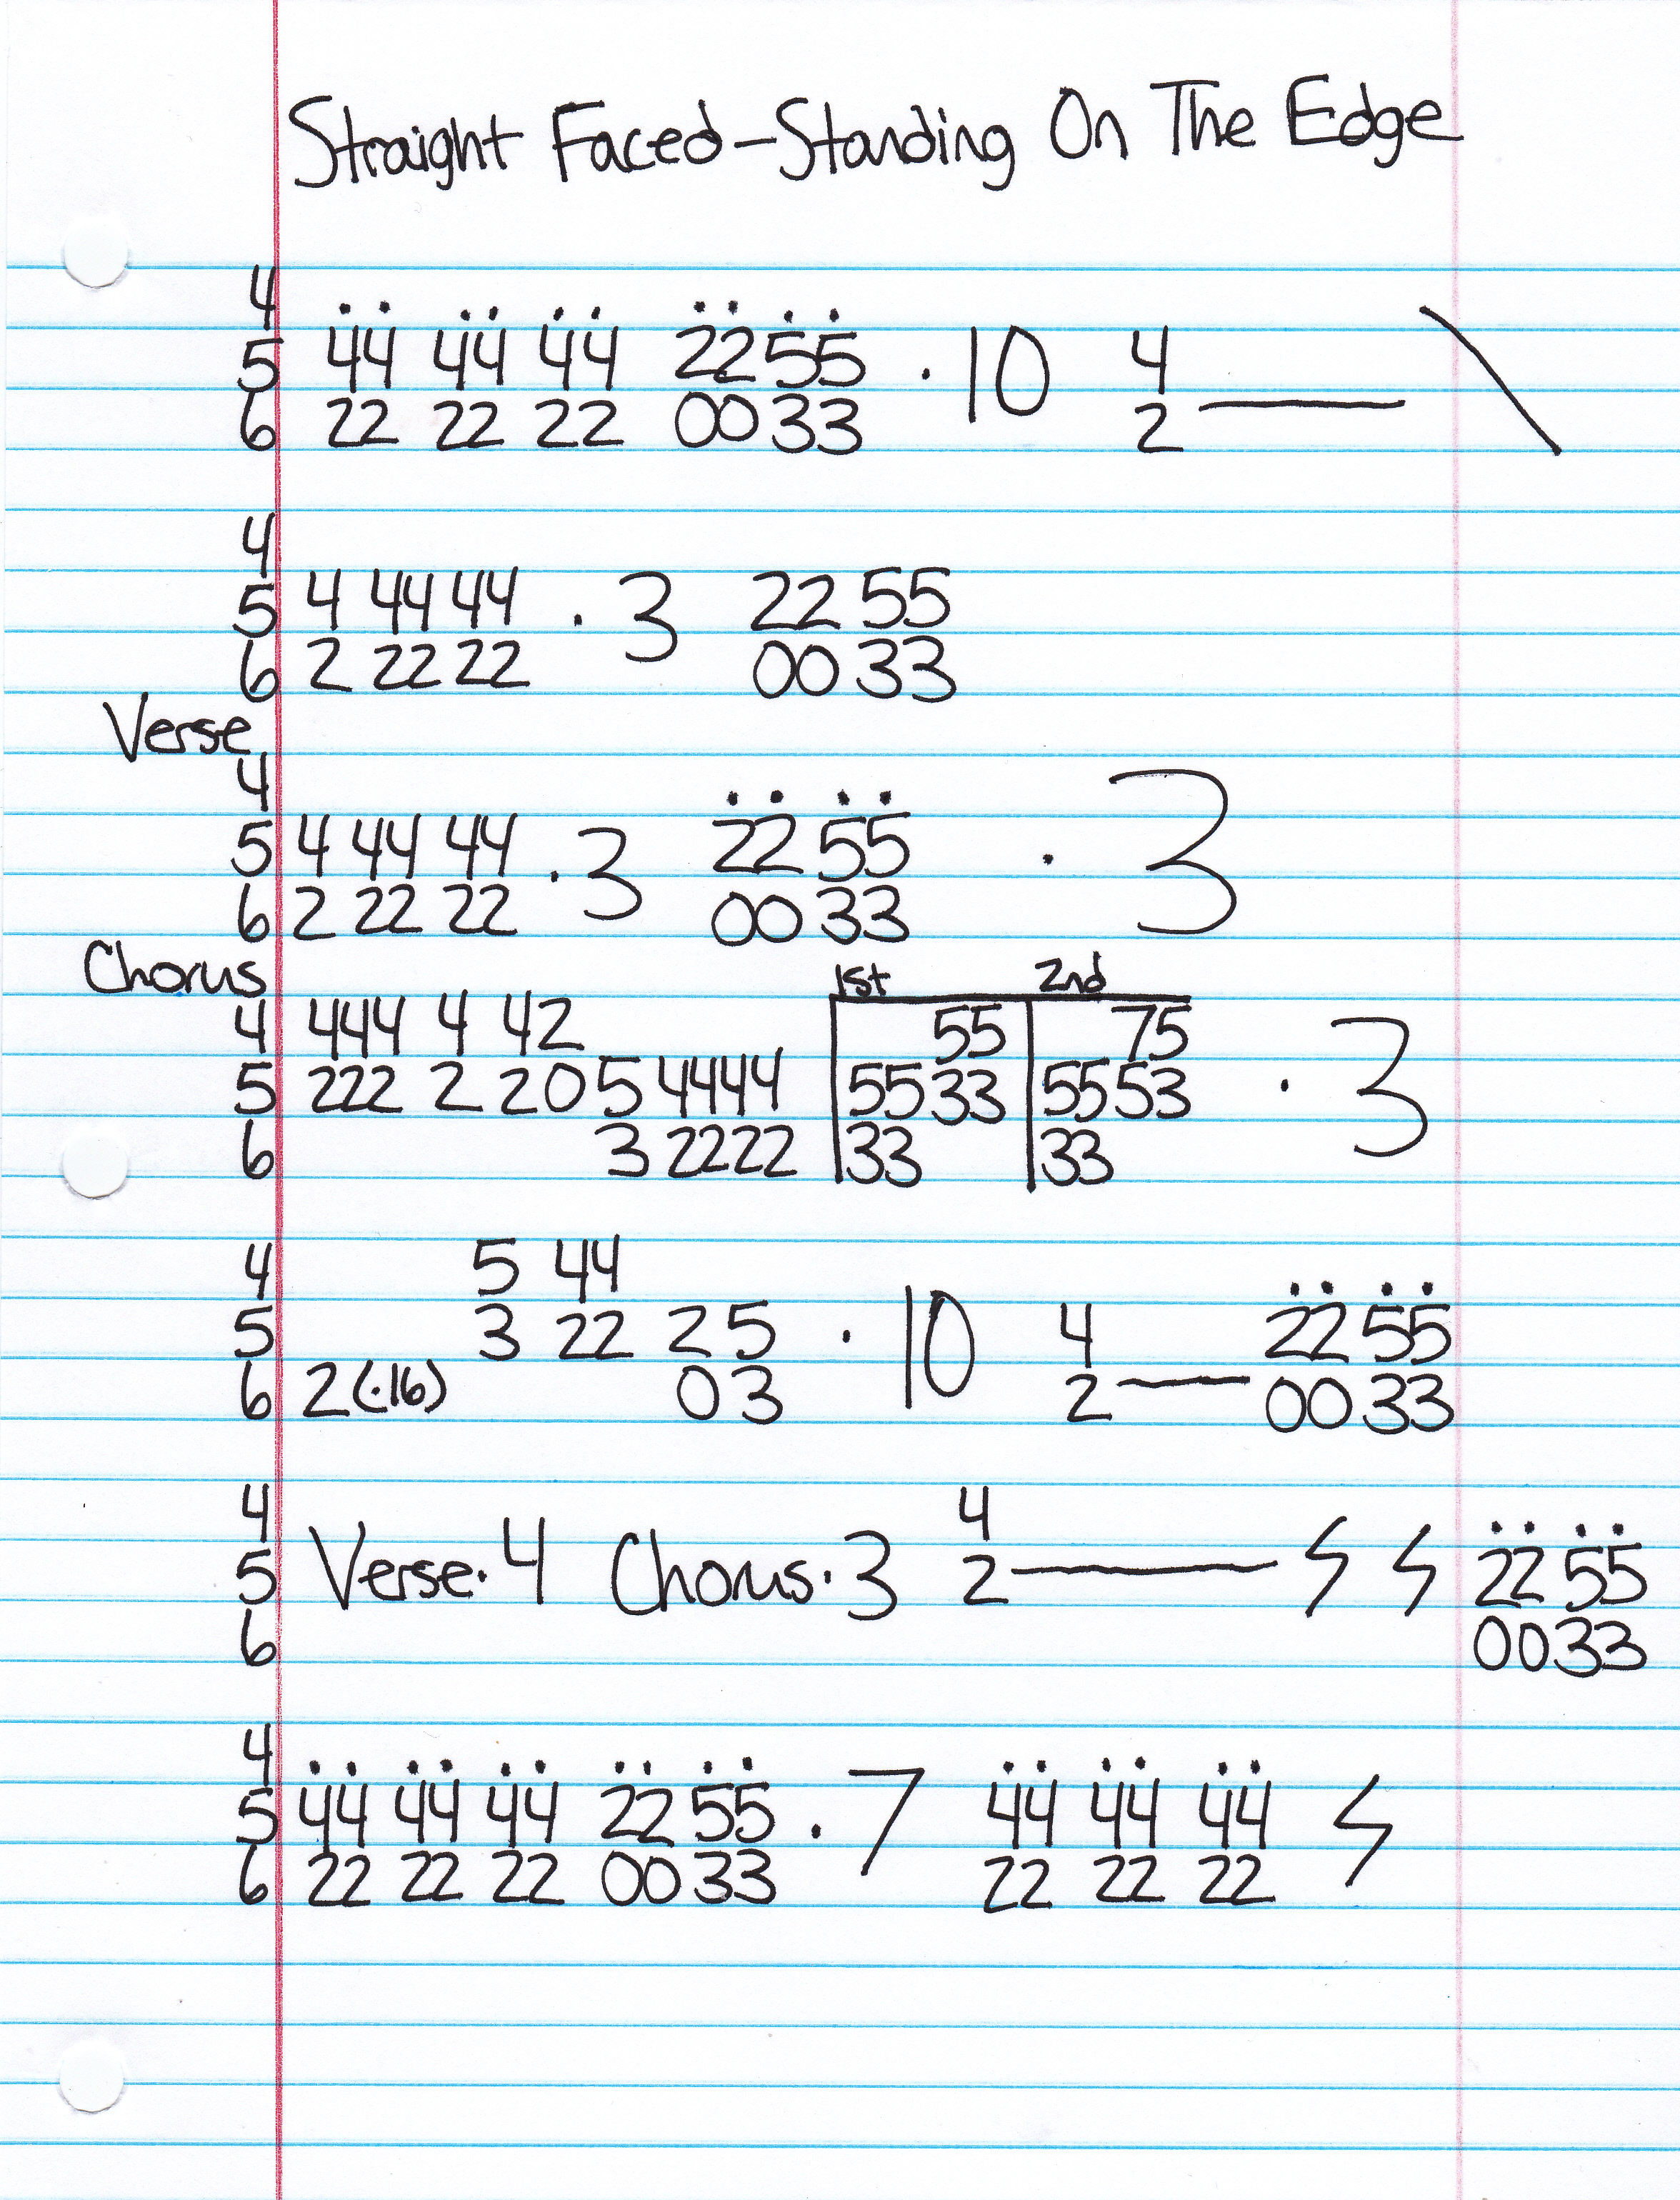 Straight Faced - Standing On The Edge
4
5 44 44 44 2255 · 10 4
6 22 22 22 0033 2
4
5 4 44 44 · 3 22 55
6 2 22 22 00 33
Verse
4
5 4 44 44 · 3 22 55 · 3
6 2 22 22 00 33
Chorus 1st 2nd
4 444 4 42 55 75
5 222 2 20 5 4444 5533 5553 · 3
6 3 2222 33 33
4 5 44
5 3 22 25 · 10 4 2255
6 2(·16) 03 2 0033
4 4
5 Verse·4 Chorus·3 2 2255
6 0033
4
5 44 44 44 2255 · 7 44 44 44
6 22 22 22 0033 22 22 22